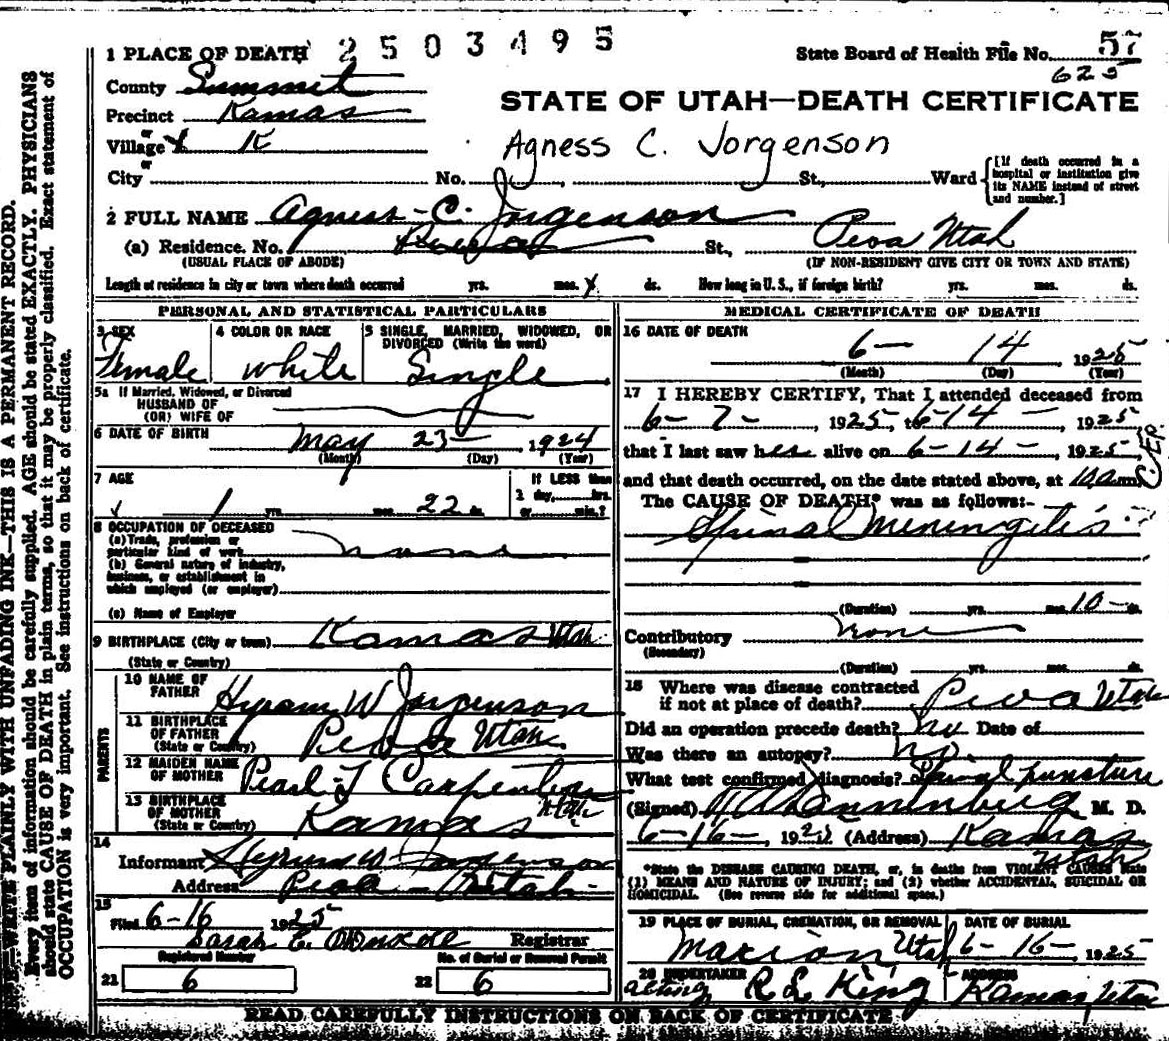 2503495
1 PLACE OF DEATH
State Board of Health File No. 57
625
County Summit
STATE OF UTAH—DEATH CERTIFICATE
Precinct Kamas
or
Village K
Agness C. Jorgenson
or
City No. St., Ward
[If death occurred in a hospital or institution give its NAME instead of street and number.]
2 FULL NAME Agness C. Jorgenson
(a) Residence. No. Peoa St., Peoa Utah
(USUAL PLACE OF ABODE) (IF NON-RESIDENT GIVE CITY OR TOWN AND STATE)
Length of residence in city or town where death occurred yrs. mos. ds. How long in U. S., if foreign birth? yrs. mos. ds.
PERSONAL AND STATISTICAL PARTICULARS
3 SEX
Female
4 COLOR OR RACE
white
5 SINGLE, MARRIED, WIDOWED, OR DIVORCED (Write the word)
Single
5a If Married, Widowed, or Divorced
HUSBAND OF
(OR) WIFE OF
6 DATE OF BIRTH May 23 1924
(Month) (Day) (Year)
7 AGE
1 yrs. mos. 22 ds.
If LESS than
1 day, hrs.
or min.?
8 OCCUPATION OF DECEASED
(a) Trade, profession or
particular kind of work none
(b) General nature of industry,
business, or establishment in
which employed (or employer)
(c) Name of Employer
9 BIRTHPLACE (City or town) Kamas Utah
(State or Country)
PARENTS
10 NAME OF
FATHER Hyrum W Jorgenson
11 BIRTHPLACE
OF FATHER
(State or Country) Peoa Utah
12 MAIDEN NAME
OF MOTHER Pearl J Carpenter
13 BIRTHPLACE
OF MOTHER
(State or Country) Kamas Utah
14
Informant Hyrum W Jorgenson
Address Peoa - Utah
15
Filed 6-16 1925
Sarah E. Registrar
Registered Number No. of Burial or Removal Permit
21 6 22 6
MEDICAL CERTIFICATE OF DEATH
16 DATE OF DEATH
6- 14 1925
(Month) (Day) (Year)
17 I HEREBY CERTIFY, That I attended deceased from
6-7- , 1925, to 6-14- 1925
that I last saw her alive on 6-14- , 1925,
and that death occurred, on the date stated above, at 10 a m
The CAUSE OF DEATH* was as follows:-
Spinal Meningitis
(Duration) yrs. mos. 10 ds.
Contributory none
(Secondary)
(Duration) yrs. mos. ds.
18 Where was disease contracted
if not at place of death? Peoa Utah
Did an operation precede death? no Date of
Was there an autopsy? no
What test confirmed diagnosis? Spinal puncture
(Signed) M. D.
6-16- , 1925 (Address) Kamas
Utah
*State the DISEASE CAUSING DEATH, or, in deaths from VIOLENT CAUSES state
(1) MEANS AND NATURE OF INJURY; and (2) whether ACCIDENTAL, SUICIDAL OR
HOMICIDAL. (See reverse side for additional space.)
19 PLACE OF BURIAL, CREMATION, OR REMOVAL
Marion Utah
DATE OF BURIAL
6-16- 1925
20 UNDERTAKER
acting R. L. King
ADDRESS
Kamas Utah
READ CAREFULLY INSTRUCTIONS ON BACK OF CERTIFICATE
WRITE PLAINLY WITH UNFADING INK—THIS IS A PERMANENT RECORD.
Every item of information should be carefully supplied. AGE should be stated EXACTLY. PHYSICIANS
should state CAUSE OF DEATH in plain terms, so that it may be properly classified. Exact statement of
OCCUPATION is very important. See instructions on back of certificate.